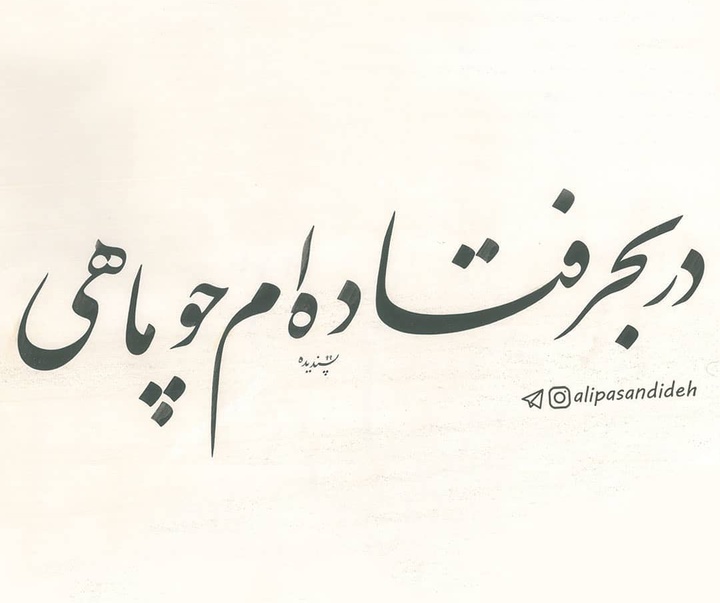 در بحر فتاده‌ام چو ماهی
پسندیده
alipasandideh